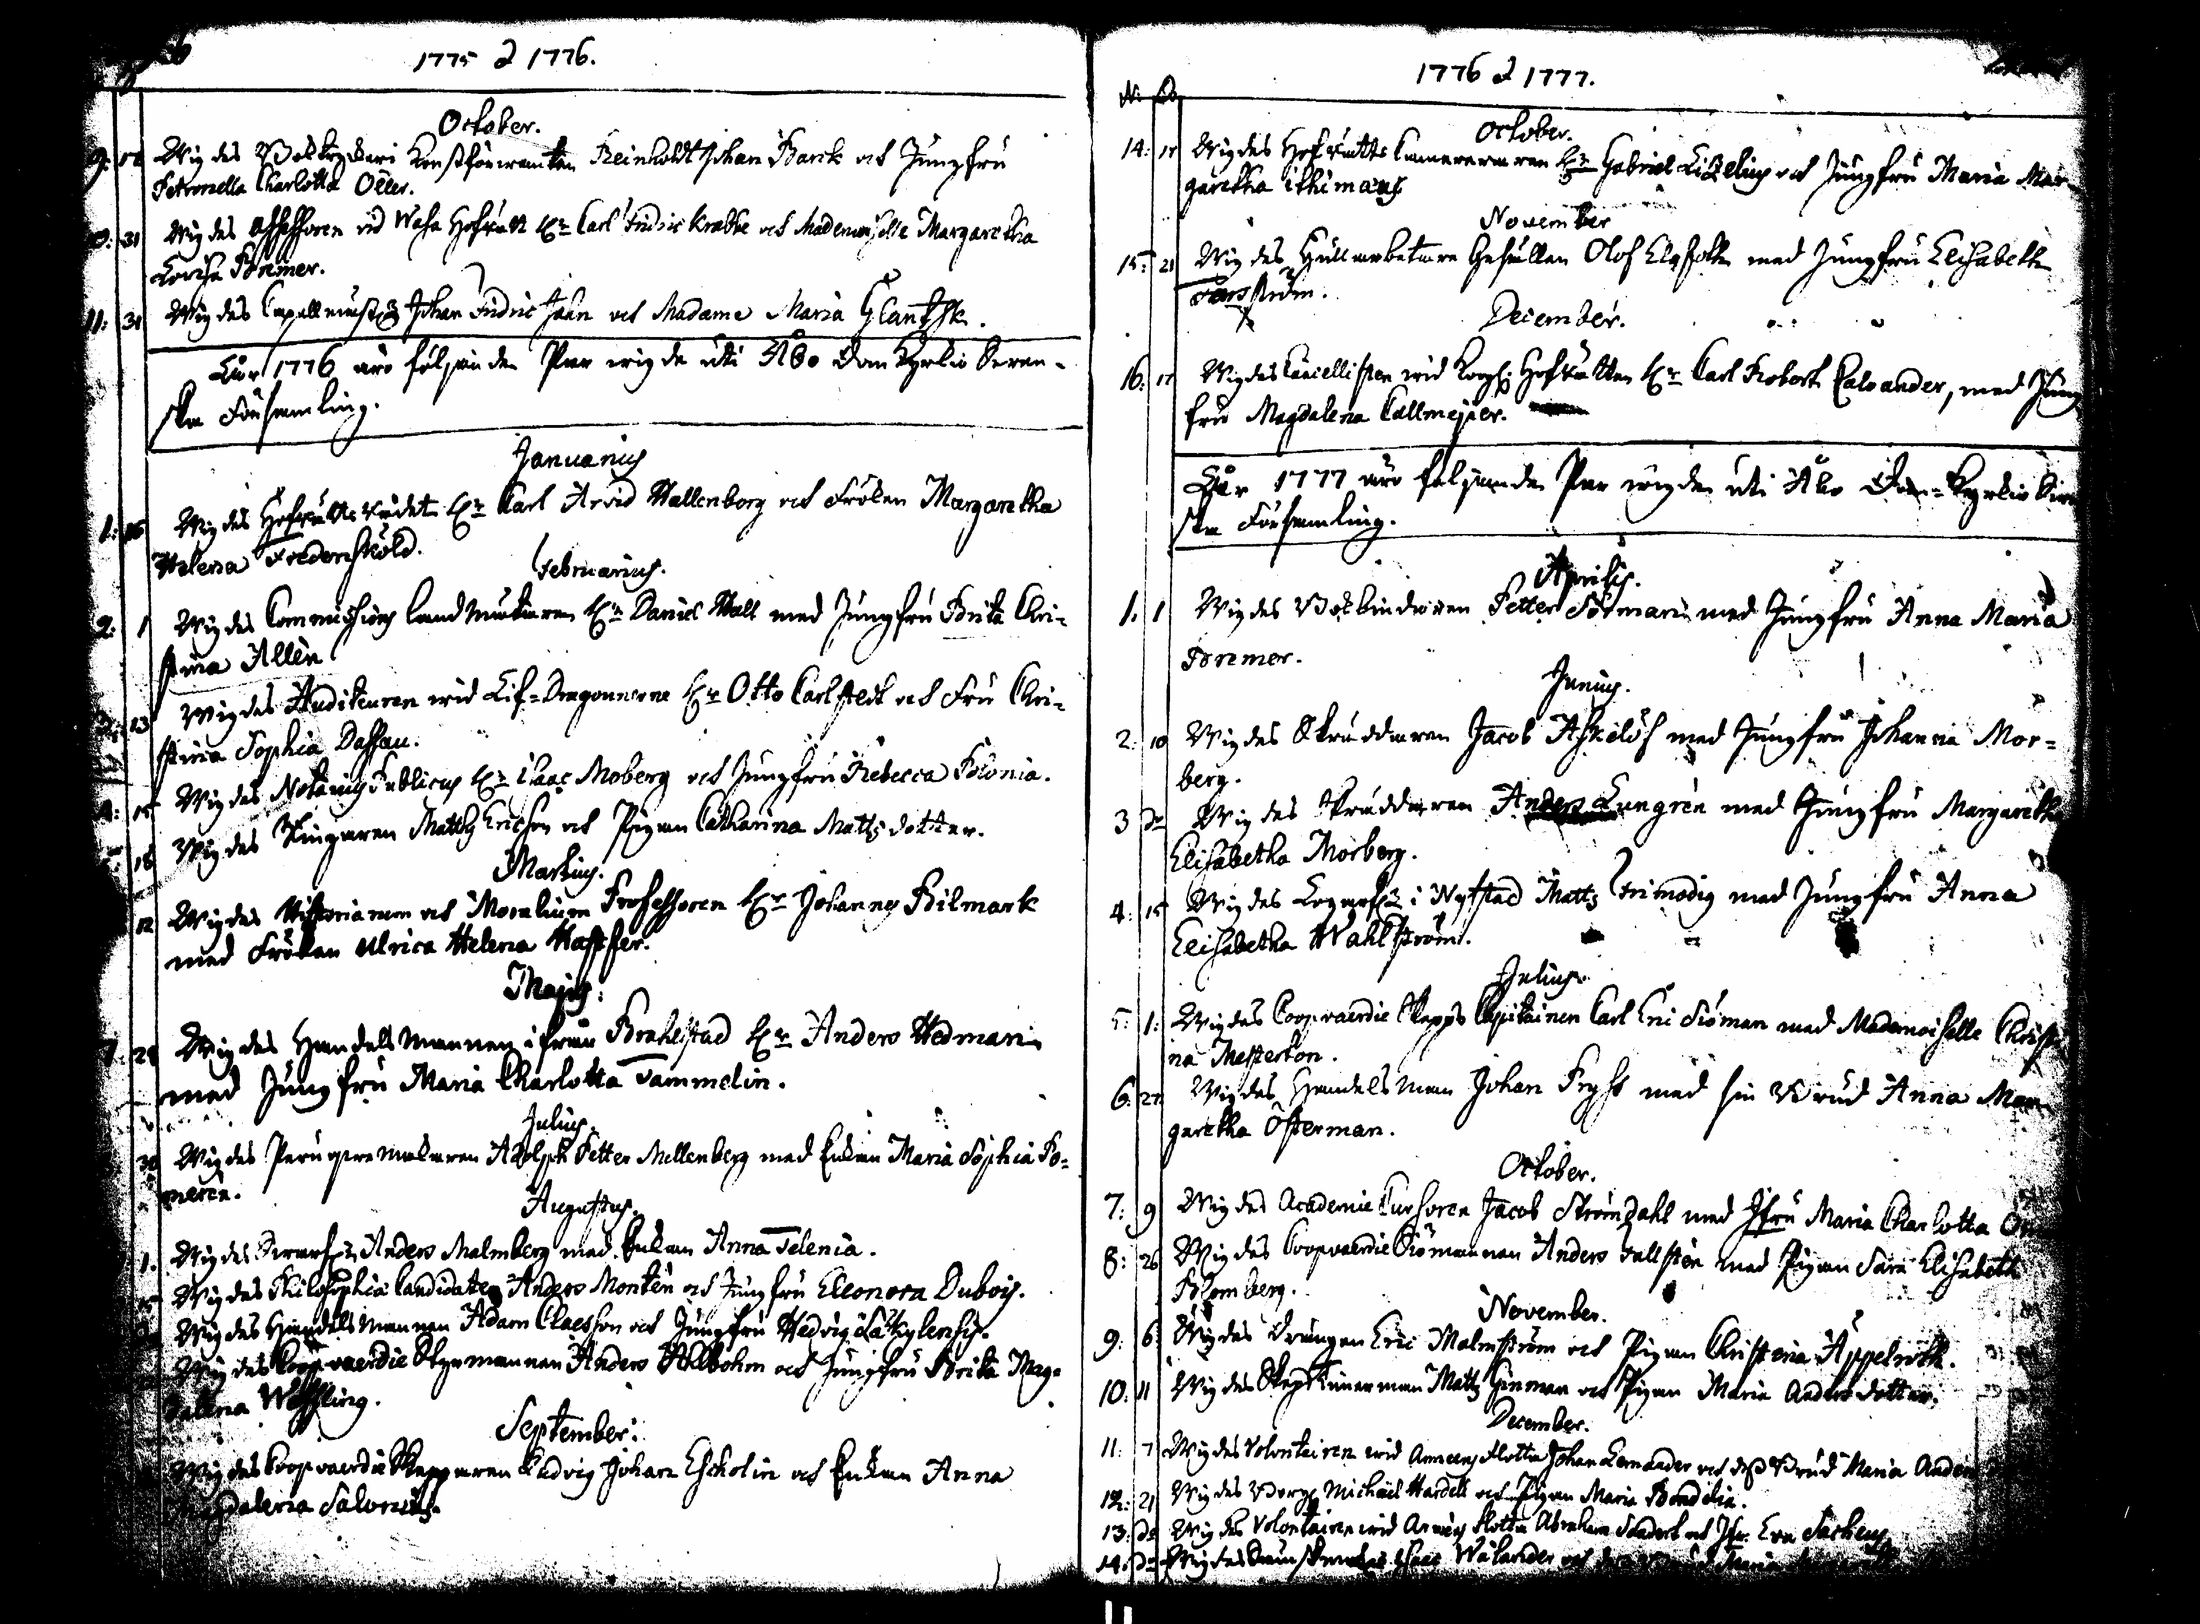 1775 & 1776.
October.
9: Wigdes Boktryckeri Konstförwanten Reinholdt Johan Barck och Jungfru
Petronella Charlotta Öller.
10: 31 Wigdes Assessoren wid Wasa Hofrätt Hr Carl Fridric Krabbe och Mademoiselle Margaretha
Lovisa Bremer.
11: 31 Wigdes Capellmäst. Johan Fridric Jahn och Madame Maria Glantsk.
Åhr 1776 äro följande Par wigde uti Åbo Dom Kyrkio Swen-
ska Församling.
Januarius
1: 16 Wigdes Hofrätts rådet Hr Carl Arvid Wallenborg och Fröken Margaretha
Helena Fredensköld.
Februarius.
2: 1 Wigdes Commissions Landmätaren Hr Daniel Wall med Jungfru Brita Chri-
stina Allén
3: 13 Wigdes Auditeuren wid Lif-Dragounerne Hr Otto Carlstedt och Fru Chri-
stina Sophia Dassau.
4: 15 Wigdes Notarius Publicus Hr Isaac Moberg och Jungfru Rebecca Polonia.
18 Wigdes Ringaren Matths Ericson och Pigan Catharina Mattsdotter.
Martius.
12 Wigdes Historiarum och Moralium Professoren Hr Johannes Bilmark
med Fröken Ulrica Helena Hastfer.
Majus:
7 28 Wigdes Handelsmannen ifrån Brahestad Hr Anders Hedman
med Jungfru Maria Charlotta Tammelin.
Julius.
30 Wigdes Peruquemakaren Adolph Petter Mellenberg med Enkan Maria Sophia Po-
merén.
Augustus.
1. Wigdes Anders Malmberg med Enkan Anna Telenia.
15 Wigdes Philosophiæ Candidaten Anders Montén och Jungfru Eleonora Dubois.
Wigdes Handelsmannen Adam Claesson och Jungfru Hedvig Satkylensis.
Wigdes Coopvaerdie Styrmannen Anders Ahlbohm och Jungfru Brita Mag-
dalena Wessling.
September:
Wigdes Coopvaerdie Skepparen Ludvig Johan Escholin och Enkan Anna
Magdalena Salonius.
1776 & 1777.
N: D
October.
14: 17 Wigdes Hofrätts Camereraren Hr Gabriel Lizelius och Jungfru Maria Mar-
garetha Ithimæus
November
15: 21 Wigdes Gullarbetare Gesällen Olof Elgfoth med Jungfru Elisabeth
Forsström.
December.
16: 17 Wigdes Cancellisten wid Kongl. Hofrätten Hr Carl Robert Calvander, med Jung
fru Magdalena Callmejier.
Åhr 1777 äro följande Par wigde uti Åbo Dom-Kyrkio Swe
ska Församling.
Aprilis.
1. 1 Wigdes Bokbindaren Petter Sörman med Jungfru Anna Maria
Bremer.
Junius.
2: 10 Wigdes Skräddaren Jacob Askelöf med Jungfru Johanna Mor-
berg.
3 do Wigdes Skräddaren Anders Lungrén med Jungfru Margaretha
Elisabetha Morberg.
4: 15 Wigdes i Nystad Matts Frimodig med Jungfru Anna
Elisabetha Wahlström.
Julius.
5: 1: Wigdes Coopvaerdie Skepps Capitainen Carl Eric Siöman med Mademoiselle Christi
na Mesterton.
6: 27 Wigdes Handelsman Johan Fryss med sin Brud Anna Mar
garetha Österman.
October.
7: 9 Wigdes Academie Cursoren Jacob Strömdahl med Jfru Maria Charlotta
8: 26 Wigdes Coopvaerdie Siömannen Anders Fallstén med Pigan Sara Elisabeth
Blomberg.
November.
9: 6: Wigdes Drängen Eric Malmström och Pigan Christina Appelroth.
10: 11 Wigdes Skeps Timerman Matts Ginman och Pigan Maria Andersdotter.
December.
11: 7 Wigdes Volontairen wid Armeens Flotta Johan Lemander och des Brud Maria Ander
12: 21 Wigdes Michäel Hardell och Pigan Maria Bondelia.
13: do Wigdes Volontairen wid Armens Flotta Abraham och Jfr. Eva
14: do Wigdes Isaac Wålander och des Brud Maria